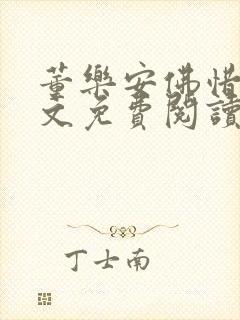 董樂安佛惜
文免費閱讀
丁士南